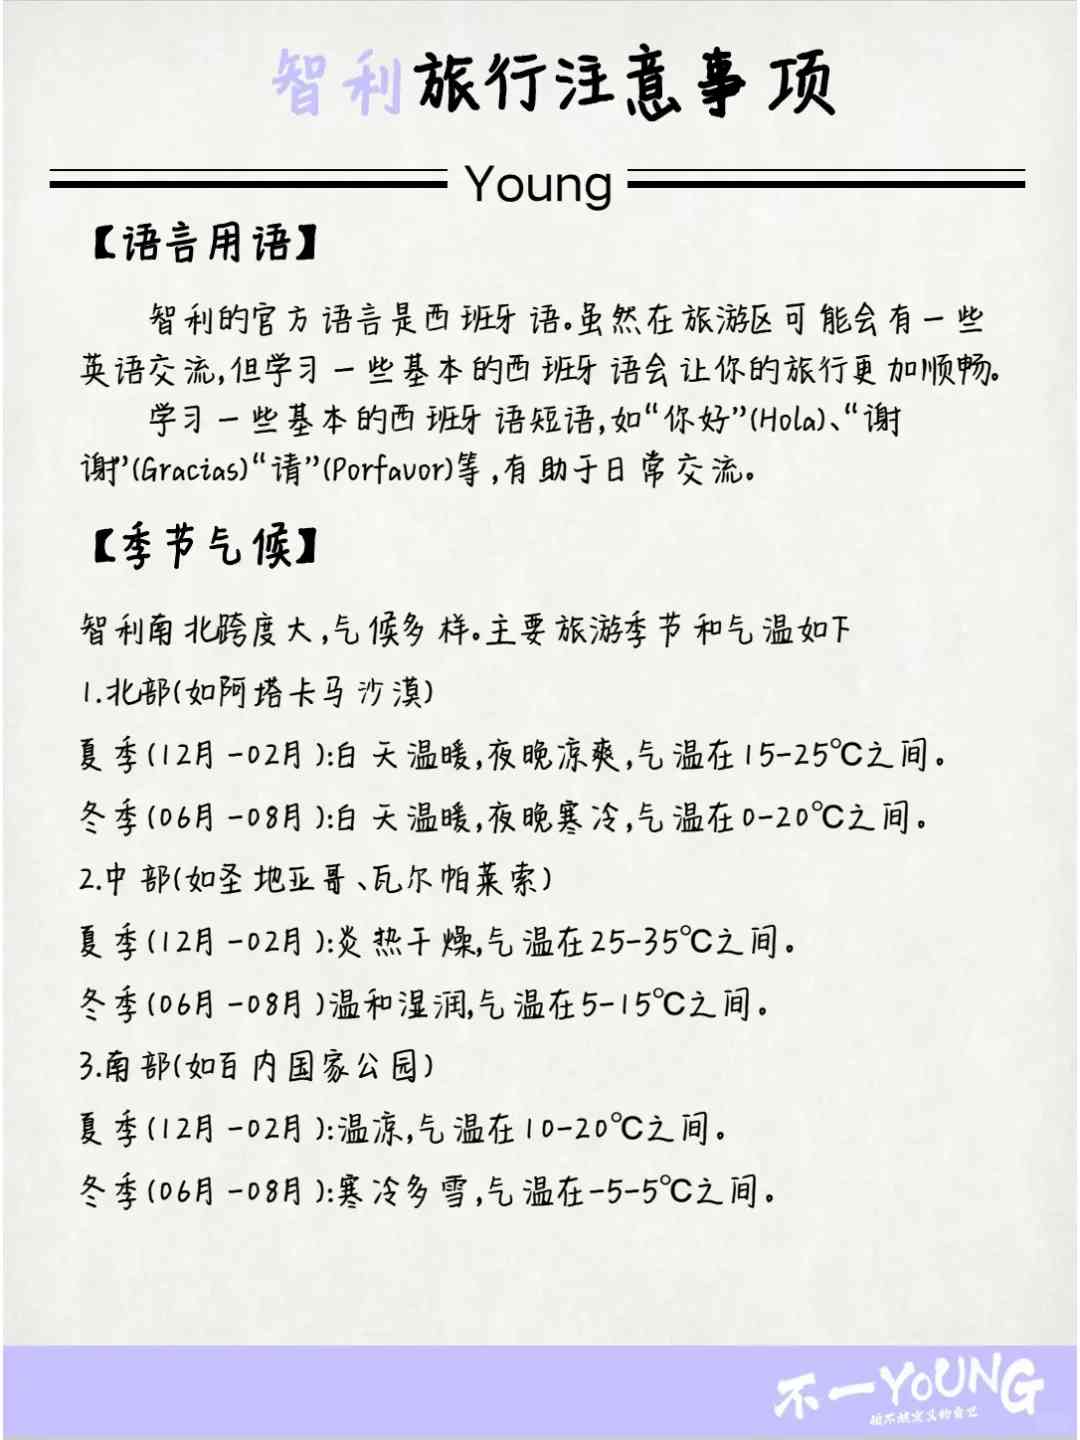 智利旅行注意事项
Young
【语言用语】
智利的官方语言是西班牙语。虽然在旅游区可能会有一些
英语交流,但学习一些基本的西班牙语会让你的旅行更加顺畅。
学习一些基本的西班牙语短语,如“你好”(Hola)、“谢
谢”(Gracias)“请”(Porfavor)等,有助于日常交流。
【季节气候】
智利南北跨度大,气候多样。主要旅游季节和气温如下
1.北部(如阿塔卡马沙漠)
夏季(12月-02月):白天温暖,夜晚凉爽,气温在15-25℃之间。
冬季(06月-08月):白天温暖,夜晚寒冷,气温在0-20℃之间。
2.中部(如圣地亚哥、瓦尔帕莱索)
夏季(12月-02月):炎热干燥,气温在25-35℃之间。
冬季(06月-08月)温和湿润,气温在5-15℃之间。
3.南部(如百内国家公园)
夏季(12月-02月):温凉,气温在10-20℃之间。
冬季(06月-08月):寒冷多雪,气温在-5-5℃之间。
不一YOUNG